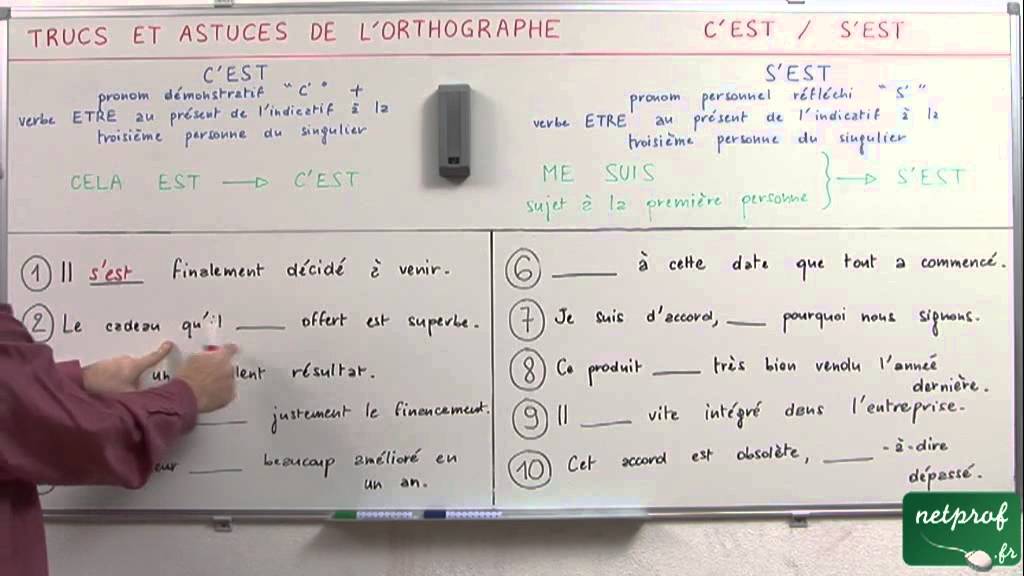 TRUCS ET ASTUCES DE L'ORTHOGRAPHE
C'EST / S'EST
C'EST
pronom démonstratif "C'" +
verbe ETRE au présent de l'indicatif à la
troisième personne du singulier
CELA EST → C'EST
S'EST
pronom personnel réfléchi "S'"
verbe ETRE au présent de l'indicatif à la
troisième personne du singulier
ME SUIS
sujet à la première personne
} → S'EST
1 Il s'est finalement décidé à venir.
2 Le cadeau qu'il ____ offert est superbe.
résultat.
____ justement le financement.
____ beaucoup amélioré en
un an.
6 ____ à cette date que tout a commencé.
7 Je suis d'accord, ____ pourquoi nous signons.
8 Ce produit ____ très bien vendu l'année
dernière.
9 Il ____ vite intégré dans l'entreprise.
10 Cet accord est obsolète, ____ -à-dire
dépassé.
netprof
.fr